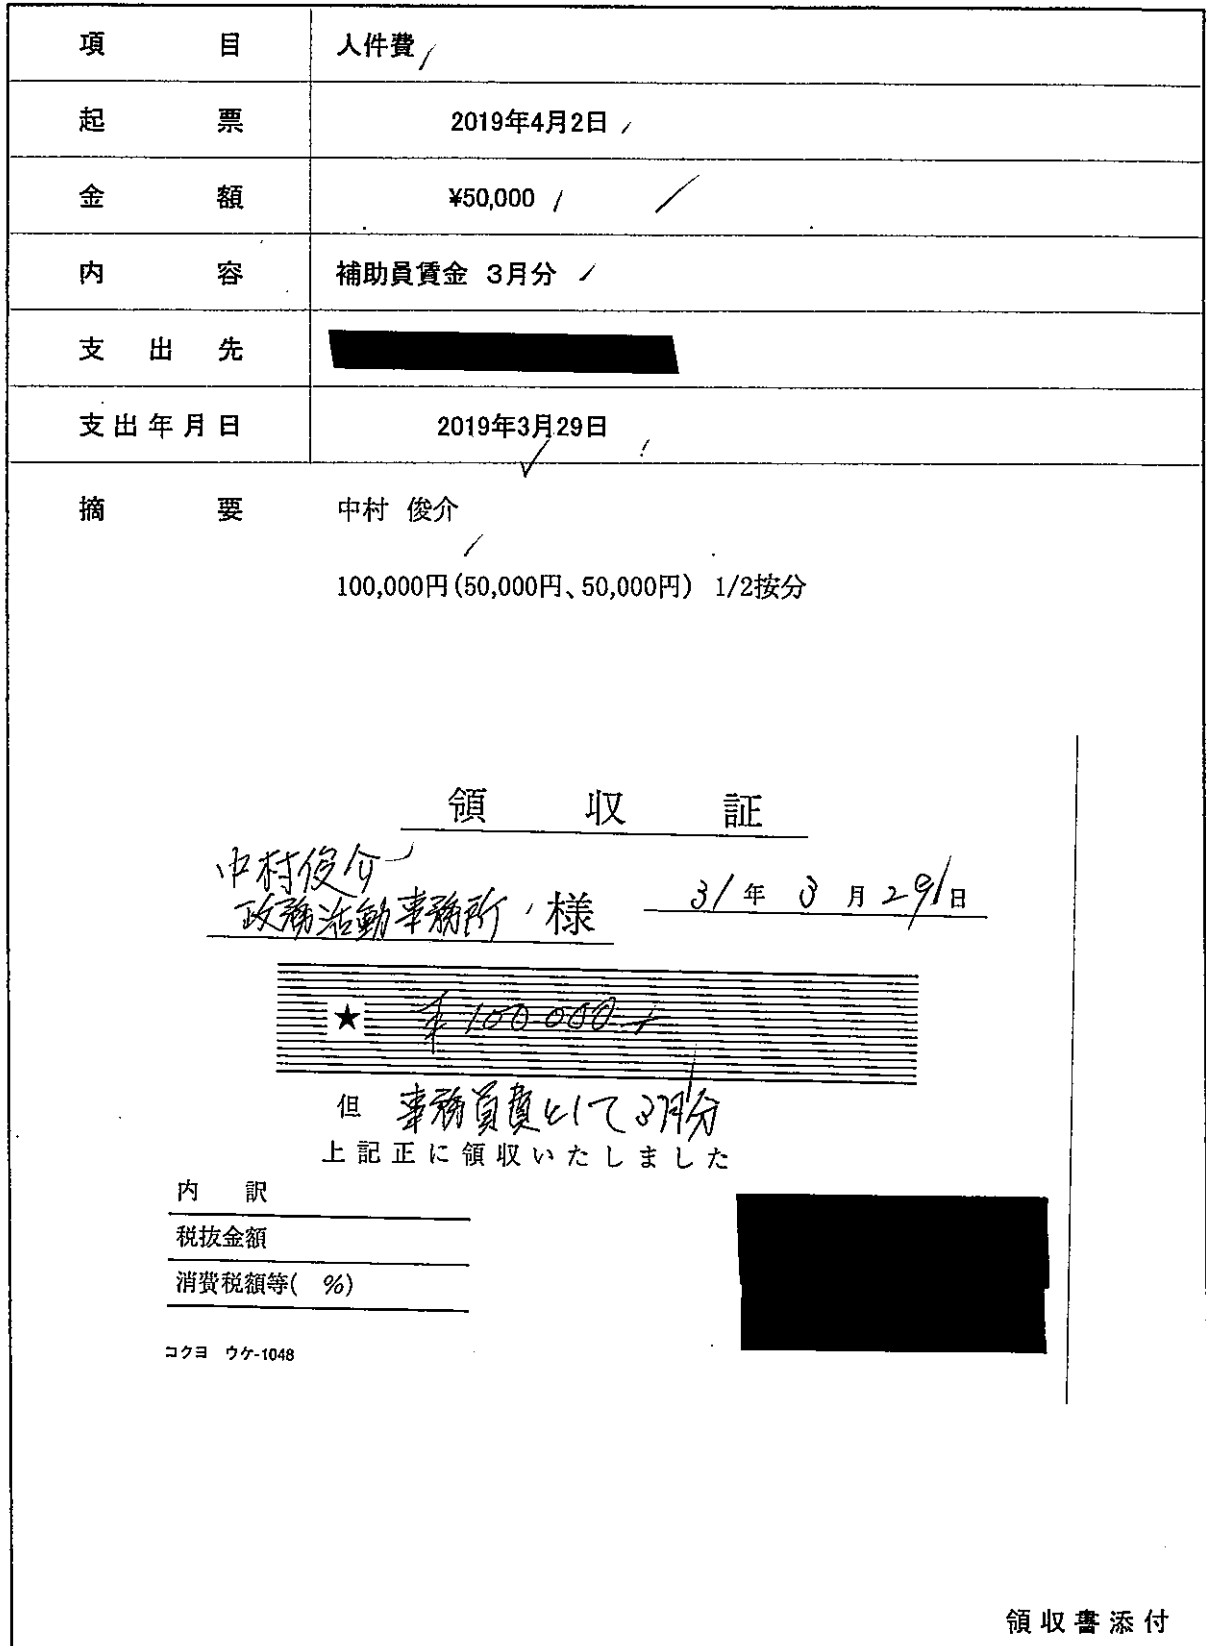 項目 人件費
起票 2019年4月2日
金額 ¥50,000
内容 補助員賃金 3月分
支出先
支出年月日 2019年3月29日
摘要 中村 俊介
100,000円(50,000円、50,000円) 1/2按分
領収証
中村俊介
政務活動事務所 様 31年 3月 29日
★ ¥100,000-
但 事務員費として3月分
上記正に領収いたしました
内 訳
税抜金額
消費税額等( %)
コクヨ ウケ-1048
領収書添付